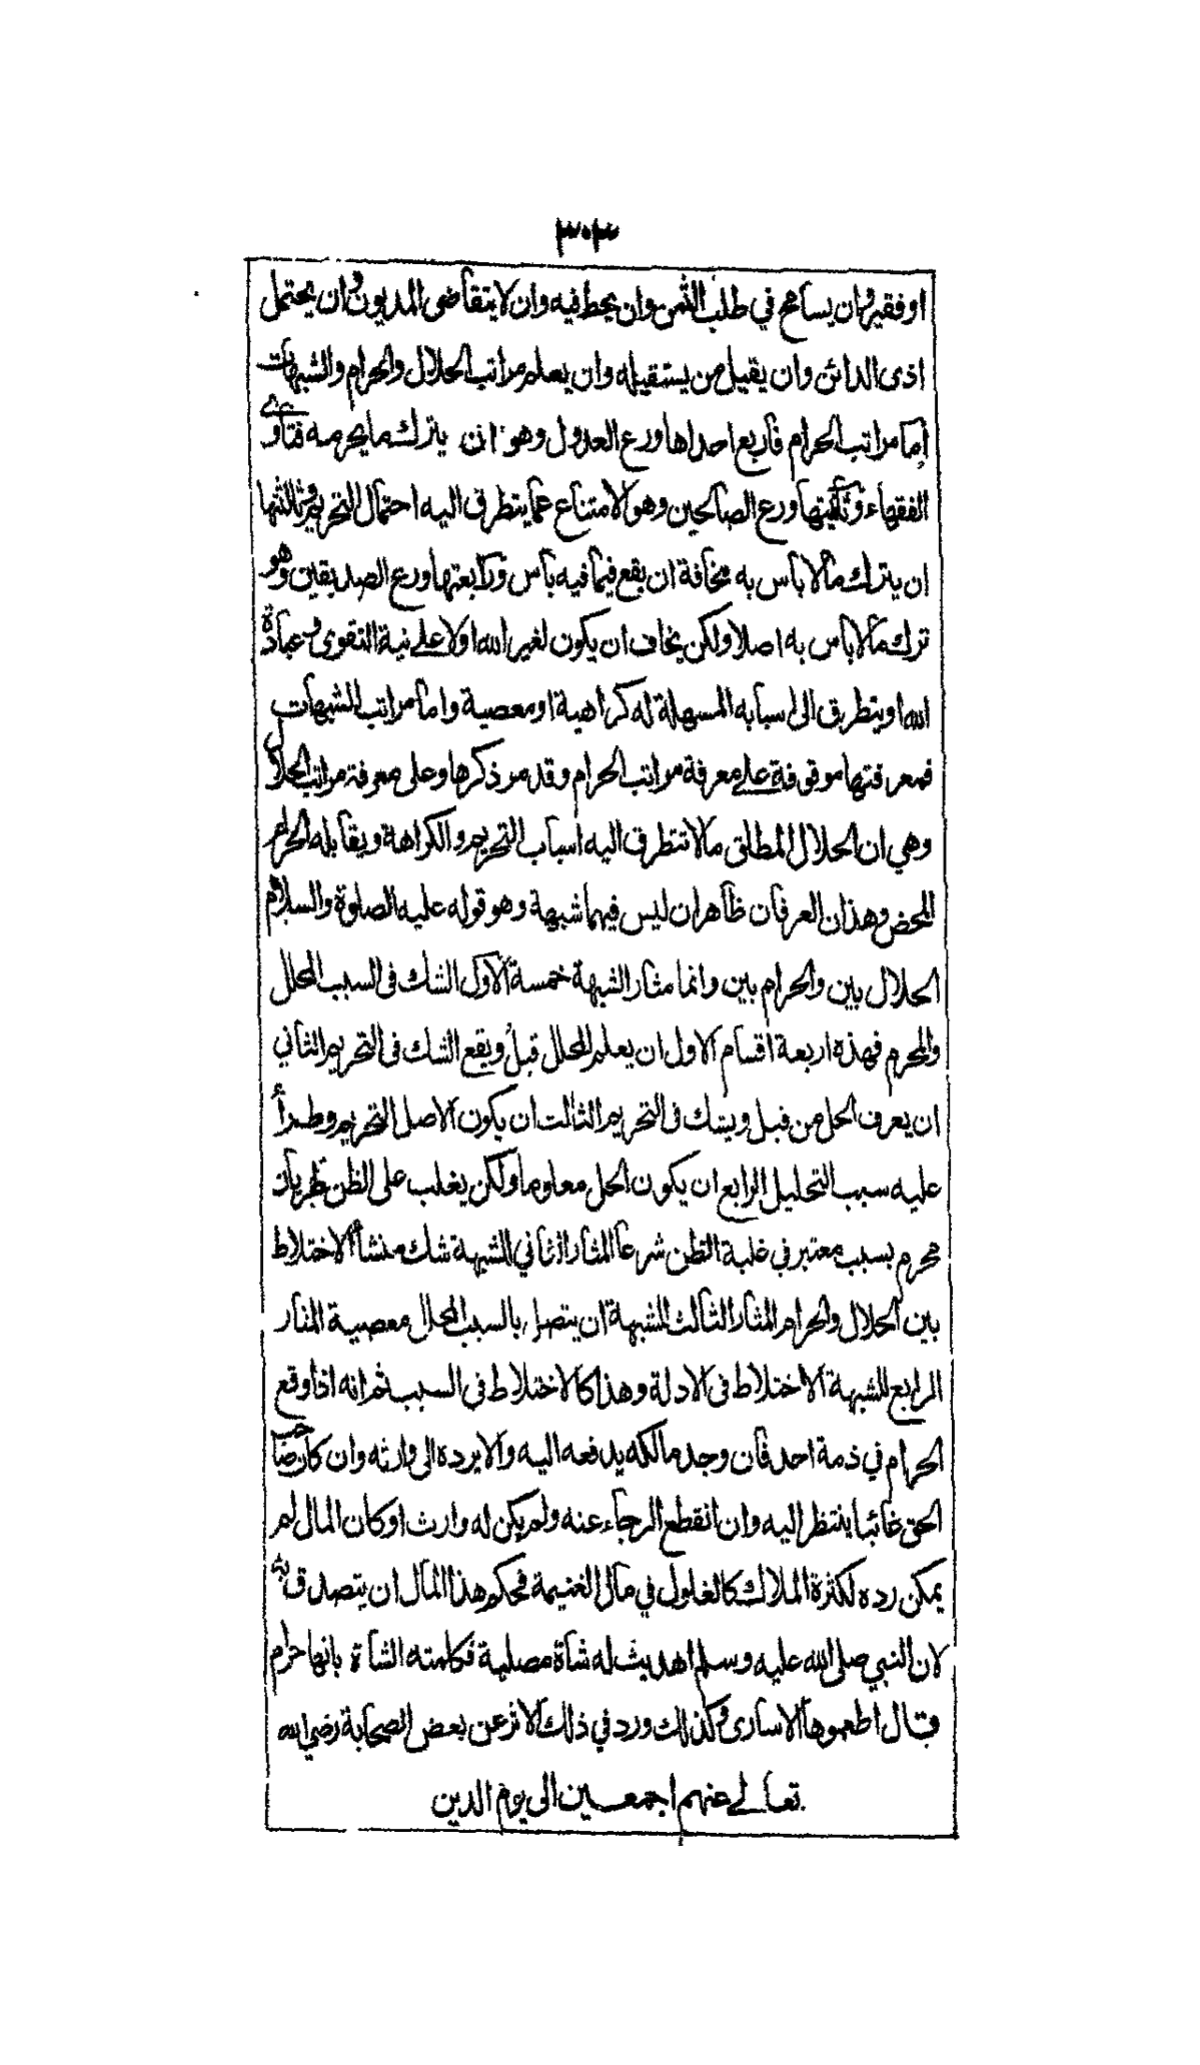 ٣٠٣
او فقير وان يسامح في طلب الثمن وان يحط فيه وان لا يتقاضى المديون وان يحتمل
اذى الدائن وان يقيل من يستقيله وان يعلم مراتب الحلال والحرام والشبهات
اما مراتب الحرام فاربع احداها ورع العدول وهو ان يترك ما يحرمه فتاوى
الفقهاء وثانيتها ورع الصالحين وهو الامتناع عما يتطرق اليه احتمال التحريم وثالثتها
ان يترك ما لا باس به مخافة ان يقع فيما فيه باس ورابعتها ورع الصديقين وهو
ترك ما لا باس به اصلا ولكن يخاف ان يكون لغير الله او لا على نية التقوى وعبادة
الله او يتطرق الى اسبابه المسهلة له كراهية او معصية واما مراتب الشبهات
فمعرفتها موقوفة على معرفة مراتب الحرام وقد مر ذكرها وعلى معرفة مراتب الحلال
وهي ان الحلال المطلق ما لا تتطرق اليه اسباب التحريم والكراهة ويقابله الحرام
المحض وهذان العرفان ظاهران ليس فيهما شبهة وهو قوله عليه الصلوة والسلام
الحلال بين والحرام بين وانما مثار الشبهة خمسة الاول الشك في السبب المحلل
والمحرم فهذه اربعة اقسام الاول ان يعلم المحلل قبل ويقع الشك في التحريم الثاني
ان يعرف الحل من قبل ويشك في التحريم الثالث ان يكون الاصل التحريم وطرأ
عليه سبب التحليل الرابع ان يكون الحل معلوما ولكن يغلب على الظن طريان
محرم بسبب معتبر في غلبة الظن شرعا المثار الثاني للشبهة شك منشأه الاختلاط
بين الحلال والحرام المثار الثالث للشبهة ان يتصل بالسبب المحلل معصية المثار
الرابع للشبهة الاختلاط في الادلة وهذا كالاختلاط في السبب ثم انه اذا وقع
الحرام في ذمة احد فان وجد مالكه يدفعه اليه والا يرده الى وارثه وان كان صاحب
الحق غائبا ينتظر اليه وان انقطع الرجاء عنه ولم يكن له وارث او كان المال لم
يمكن رده لكثرة الملاك كالغلول في مال الغنيمة فحكم هذا المال ان يتصدق به
لان النبي صلى الله عليه وسلم اهديت له شاة مصلية فكلمته الشاة بانها حرام
فقال اطعموها الاسارى وكذلك ورد في ذلك الاثر عن بعض الصحابة رضي الله
تعالى عنهم اجمعين الى يوم الدين